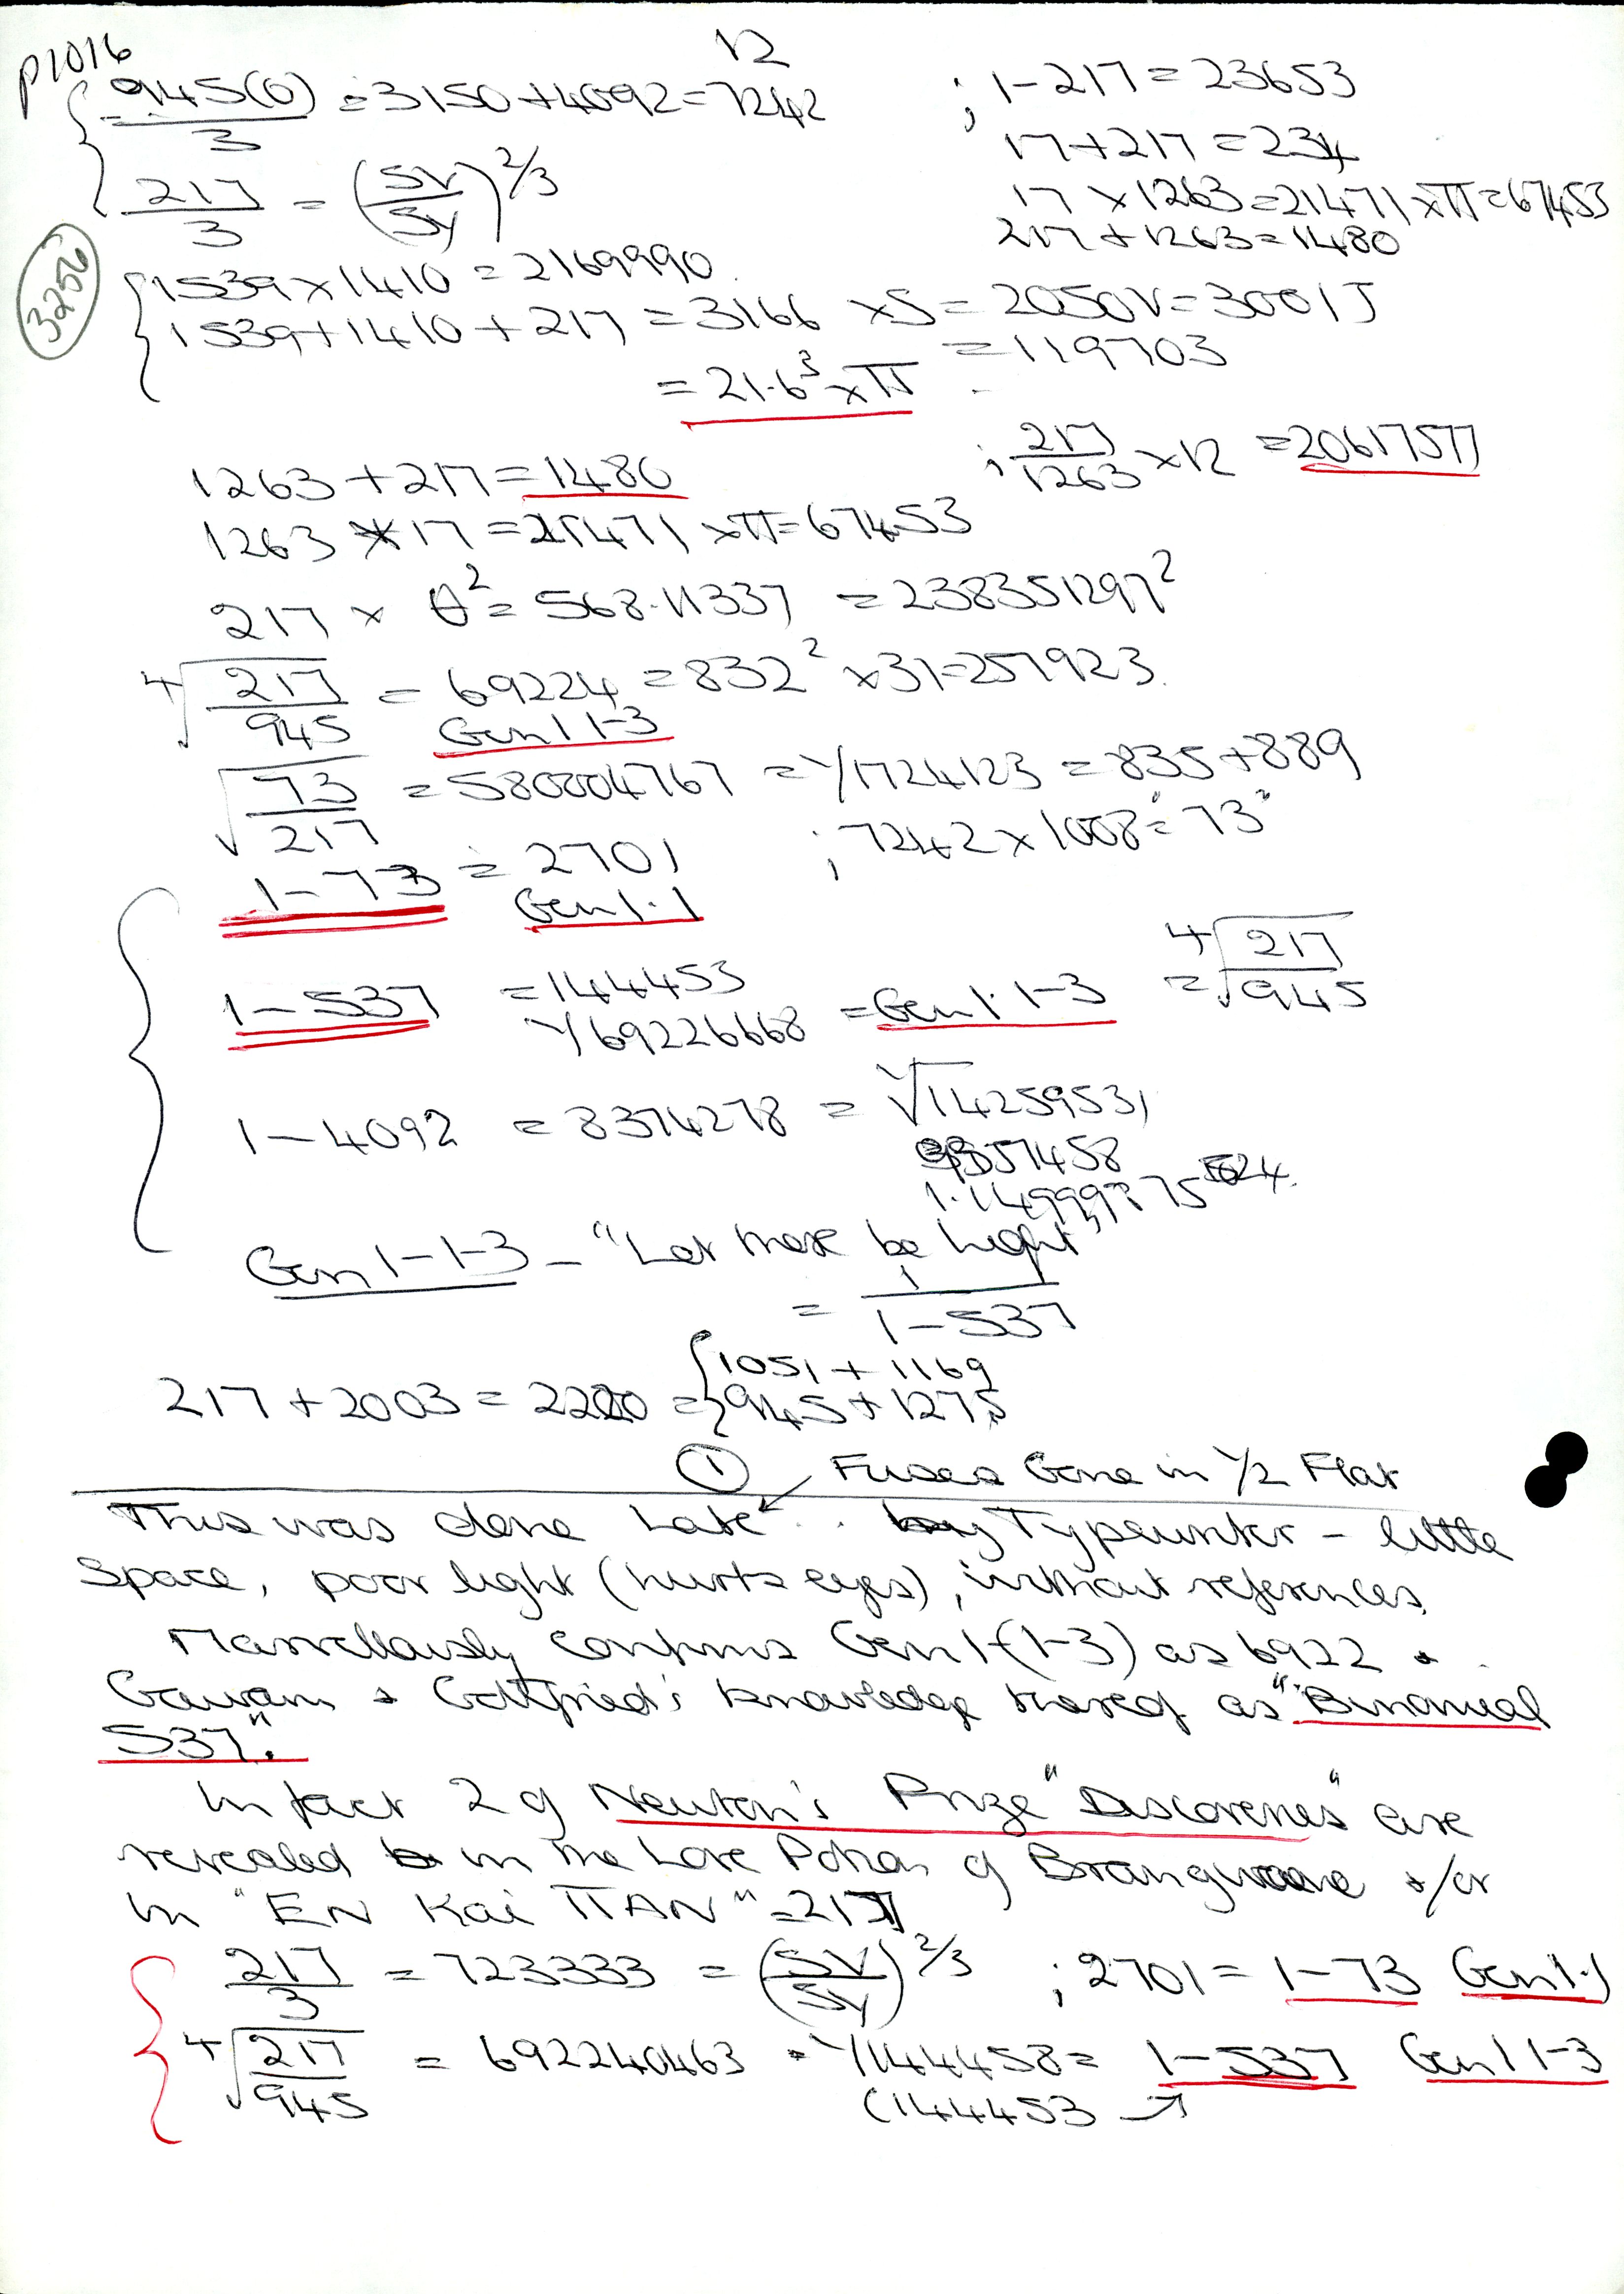 p1016
12
945(0)/3 = 3150 + 4092 = 7242 ; 1-217 = 23653
17+217 = 234
217/3 = (SV/Sy)^2/3
17 x 1263 = 21471 x π = 67453
217 + 1263 = 1480
3256
1539 x 1410 = 2169990
1539 + 1410 + 217 = 3166 x S = 2050V = 3001J
= 21.6³ x π = 119703
1263 + 217 = 1480 ; 217/1263 x 12 = 20617577
1263 x 17 = 21471 x π = 67453
217 x θ² = 568.11337 = 238351297²
⁴√217/945 = 69224 = 832² x 31 = 257923
Gen 1 1-3
√73/217 = 580004767 = 1/1724123 = 835 + 889
1-73 = 2701 ; 7242 x 1008 = "73"
Gen 1.1
1-537 = 144453 = ⁴√217/945
1/69226668 = Gen 1.1-3
1-4092 = 8374278 = √14259531
Gen 1-1-3 - "Let there be light"
= 1/1-537
217 + 2003 = 2220 = { 1051 + 1169
945 + 1275
① Fuses Gone in 1/2 Flat
This was done Late .. by Typewriter - little
Space, poor light (hurts eyes), without references.
Marvellously confirms Gen 1-(1-3) as 6922 +
Gawain + Gottfried's knowledge thereof as "Binomial
537".
In fact 2 of Newton's Prize "Discoveries" are
revealed in the Love Potion of Brangwaene +/or
in "EN Kai ΠAN" = 217
217/3 = 723333 = (SV/Sy)^2/3 ; 2701 = 1-73 Gen 1.1
⁴√217/945 = 692240463 = 1/144458 = 1-537 Gen 1 1-3
(144453 ↗